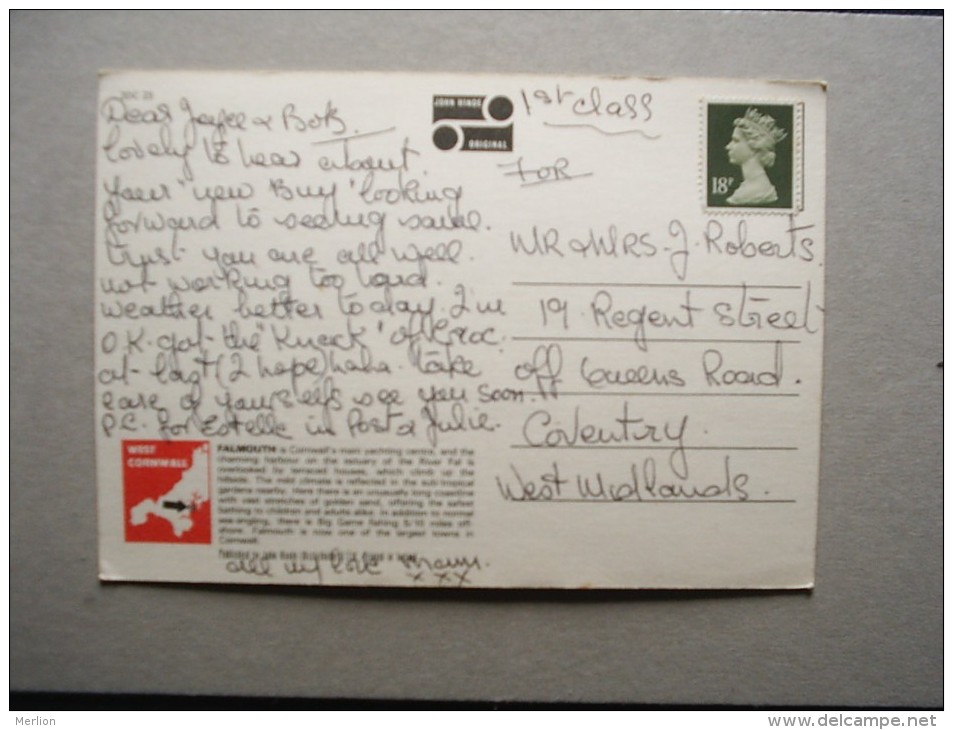 2DC 25
Dear Joyce & Bob.
lovely to hear about
your "new Buy" looking
forward to seeing same.
trust you are all well.
not working too hard.
weather better today. I'm
O.K. got the "Knack" of
at last (I hope) haha. take
care of yourselfs see you soon.
P.C. for Estelle in Post & Julie.
JOHN HINDE
ORIGINAL
1st class
FOR
18P
MR & MRS. J. Roberts.
19. Regent Street
off Queens Road.
Coventry.
West Midlands.
WEST
CORNWALL
FALMOUTH is Cornwall's main yachting centre, and the
charming harbour on the estuary of the River Fal is
overlooked by terraced houses, which climb up the
hillside. The mild climate is reflected in the sub-tropical
gardens nearby. Here there is an unusually long coastline
with vast stretches of golden sand, offering the safest
bathing to children and adults alike. In addition to normal
sea-angling, there is Big Game fishing 5/10 miles off-
shore. Falmouth is now one of the largest towns in
Cornwall.
Published by John Hinde (Distributors) Ltd.
all my love Mam.
x x x
Merlion
www.delcampe.net